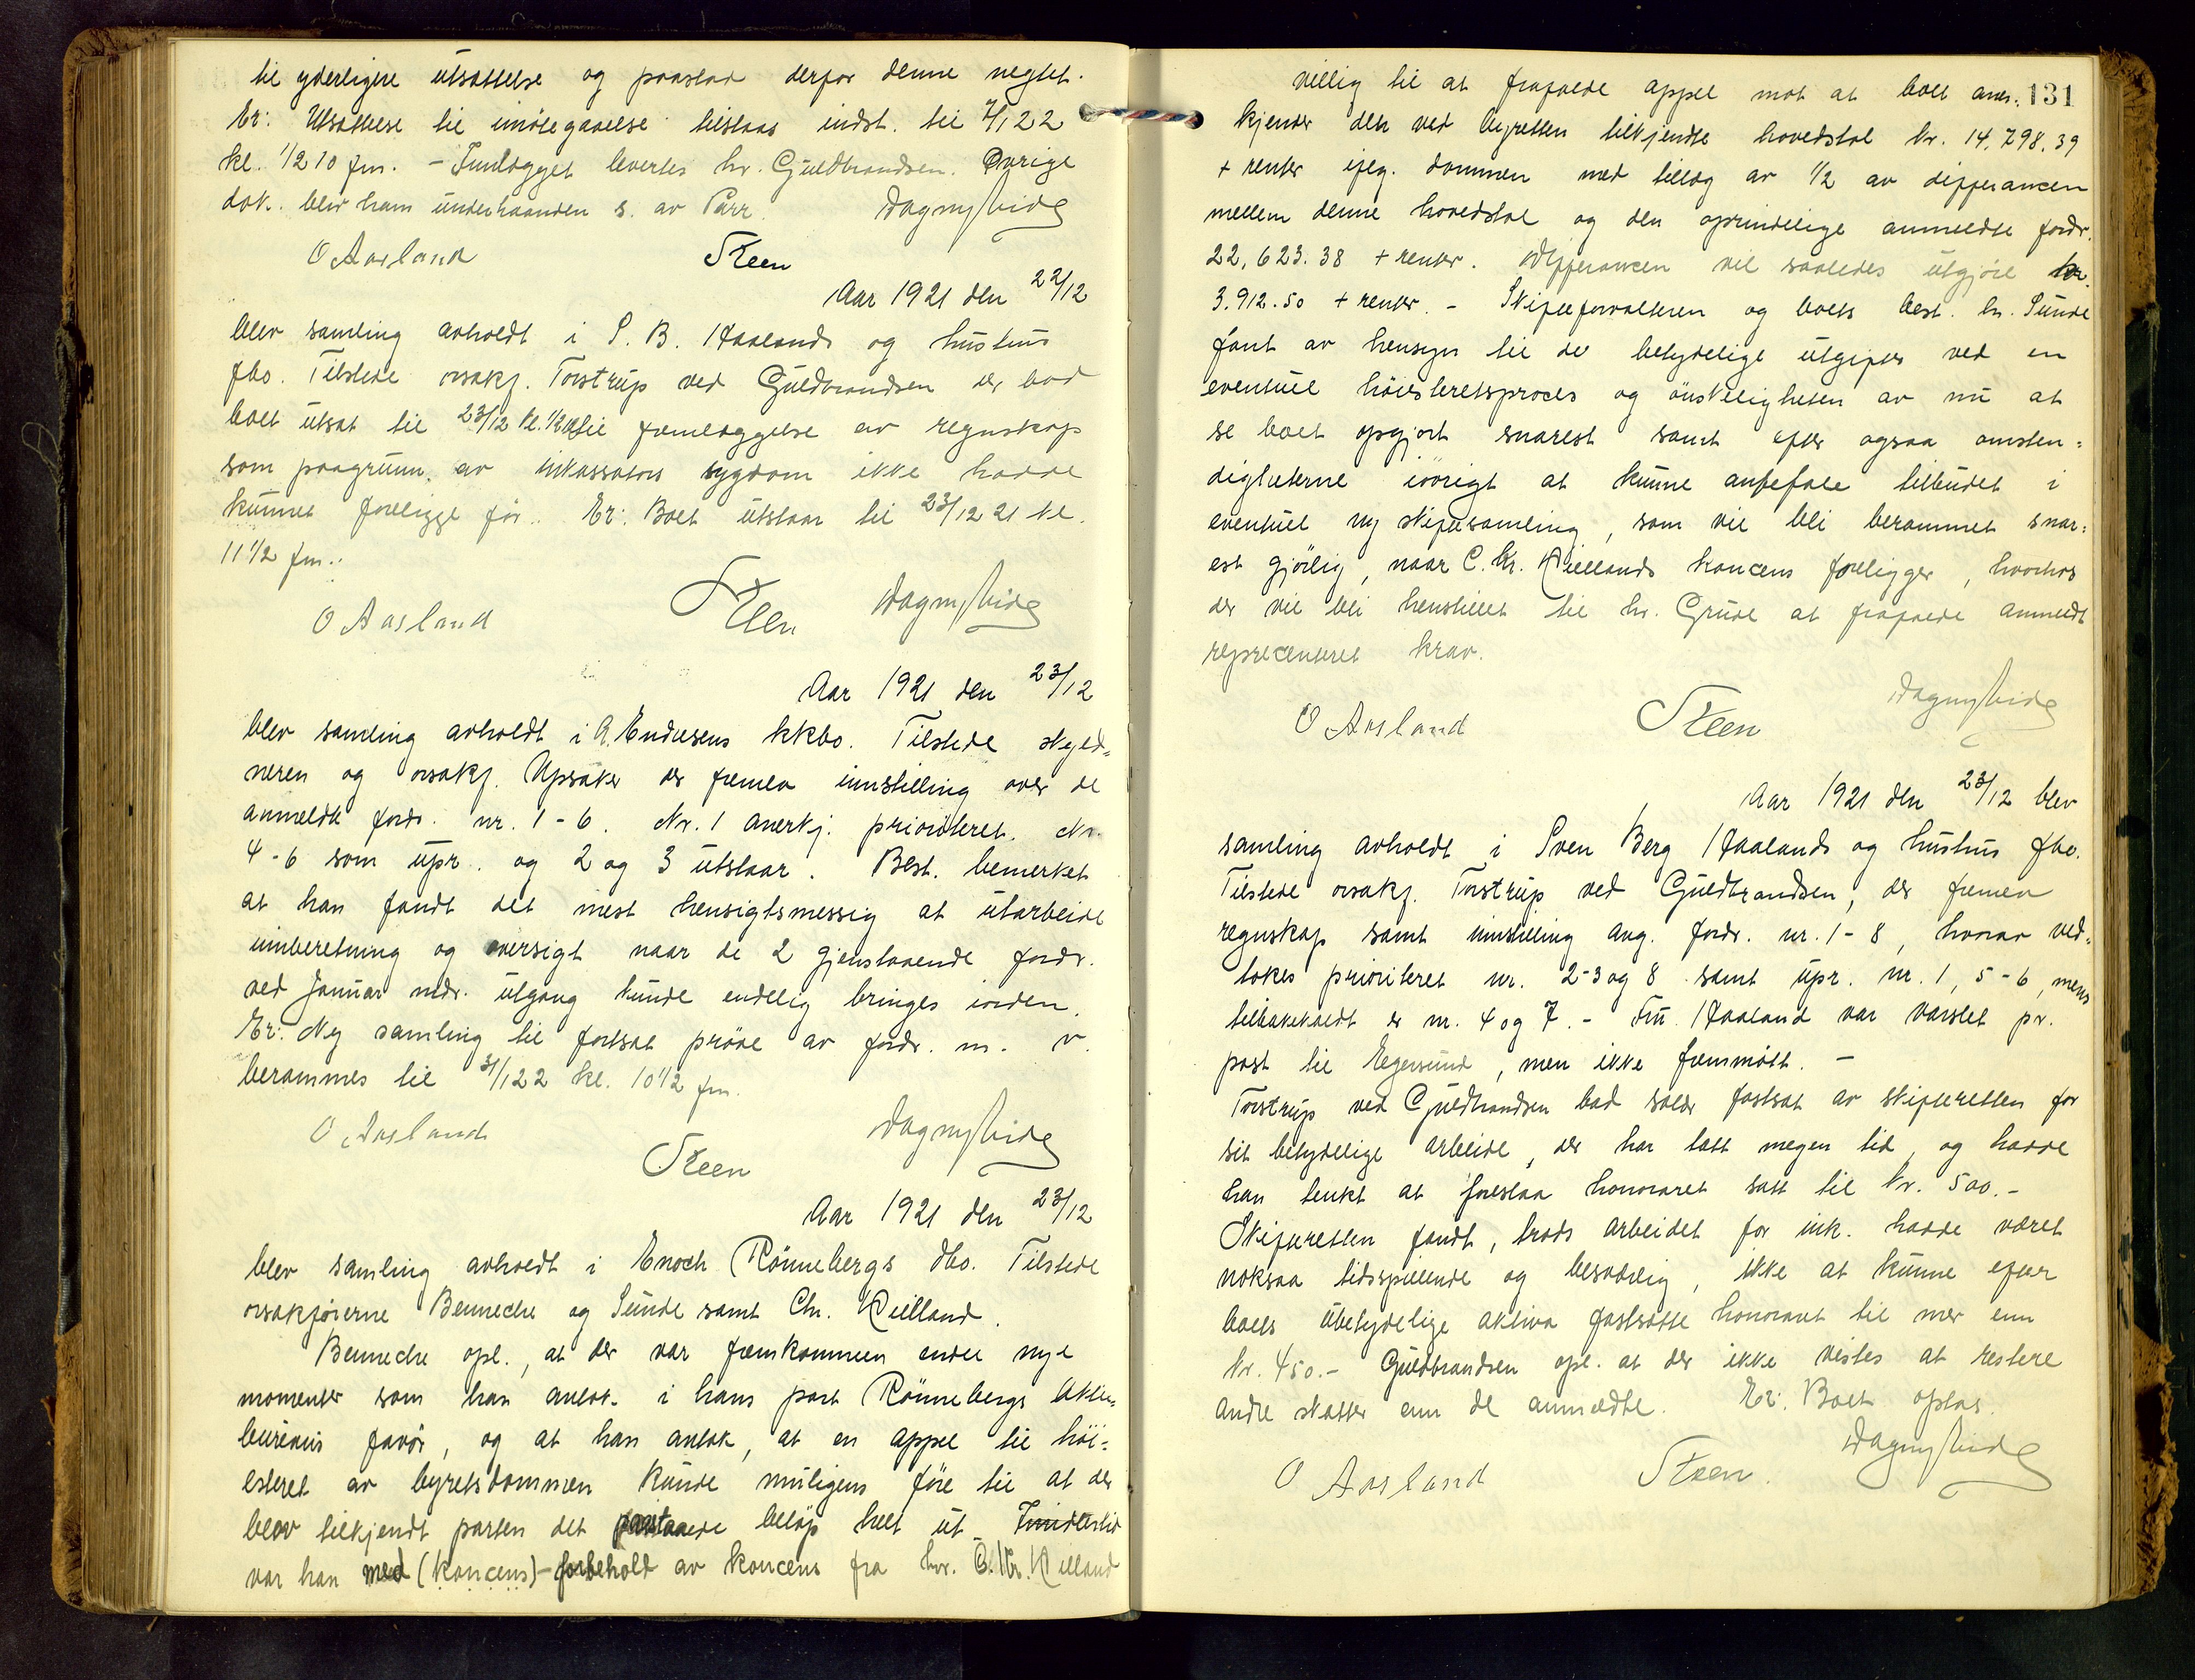 til yderligere utsættelse og paastod derfor denne negtet.
Er: Utsættelse til imøtegaaelse tilstaas indst. til 7/1 22
kl. 1/2 10 fm. - Innlægget levertes hr. Guldbrandsen. Øvrige
dok. blev ham underhaanden s. av Parr. Dagny Eide
O Aasland Steen
Aar 1921 den 22/12
blev samling avholdt i S. B. Haalands og hustrus
fbo. Tilstede orsakf. Torstrup ved Guldbrandsen der bad
boet utsat til 23/12 kl. 1/2 til fremlæggelse av regnskap
som paagrunn. av inkassators sygdom ikke hadde
kunnet foreligge før. Er: Boet utstaar til 23/12 21 kl.
11 1/2 fm.
O Aasland Steen Dagny Eide
Aar 1921 den 23/12
blev samling avholdt i A. Endresens kkbo. Tilstede skyld-
neren og orsakf. Opsaker der fremla innstilling over de
anmeldte fordr. nr. 1-6. Nr. 1 anerkj. prioriteret. Nr.
4-6 som upr. og 2 og 3 utstaar. Best. bemerket
at han fandt det mest hensigtsmessig at utarbeide
innberetning og oversigt naar de 2 gjenstaaende fordr.
ved Januar mdr. utgang kunde endelig bringes iorden.
Er: Ny samling til fortsat prøve av fordr. m. v.
berammes til 31/1 22 kl. 10 1/2 fm.
O Aasland Steen Dagny Eide
Aar 1921 den 23/12
blev samling avholdt i Enoch Rønnebergs dbo. Tilstede
orsakførerne Benneche og Sunde samt Chr. Kielland.
Benneche opl., at der var fremkommen endel nye
momenter som han antok i hans part Rønnebergs Aktie-
bureaus favør, og at han antok, at en appel til høi-
esteret av byretsdommen kunde muligens føre til at der
blev tilkjendt parten det paastaaede beløp helt ut. Imidlertid
var han med (koncens) - forbehold av koncens fra hr. C. Kr. Kielland
131
villig til at frafalde appel mot at boet aner-
kjender den ved byretten tilkjendte hovedstol kr. 14,798.39
+ renter iflg. dommen med tillæg av 1/2 av differancen
mellem denne hovedstol og den oprindelige anmeldte fordr.
22,623.38 + renter. Differancen vil saaledes utgjøre kr.
3.912.50 + renter. - Skifteforvalteren og boets best. hr. Sunde
fant av hensyn til de betydelige utgifter ved en
eventuel høiesteretsproces og ønskeligheten av nu at
se boet opgjort snarest samt efter ogsaa omsten-
digheterne iøvrigt at kunne anbefale tilbudet i
eventuel ny skiftesamling, som vil bli berammet snar-
est gjørlig, naar C. Kr. Kiellands koncens foreligger, hvorhos
der vil bli henstillet til hr. Grude at frafalde anmeldt
reprecenteret krav.
O Aasland Steen Dagny Eide
Aar 1921 den 23/12 blev
samling avholdt i Sven Berg Haalands og hustrus fbo.
Tilstede orsakf. Torstrup ved Guldbrandsen, der fremla
regnskap samt innstilling ang. fordr. nr. 1-8, hvorav ved-
tokes prioriteret nr. 2-3 og 8 samt upr. nr. 1, 5-6, mens
tilbakekaldt er nr. 4 og 7. - Fru Haaland var varslet pr.
post til Egersund, men ikke fremmøtt. -
Torstrup ved Guldbrandsen bad salær fastsat av skifteretten for
sit betydelige arbeide, der har tatt megen tid, og hadde
han tenkt at foreslaa honoraret satt til kr. 500.-
Skifteretten fandt, trods arbeidet for ink. hadde været
noksaa tidsspillende og besværlig, ikke at kunne efter
boets ubetydelige aktiva fastsætte honoraret til mer enn
kr. 450.- Guldbrandsen opl. at der ikke vistes at restere
andre skatter enn de anmeldte. Er: Boet optas.
O Aasland Steen. Dagny Eide